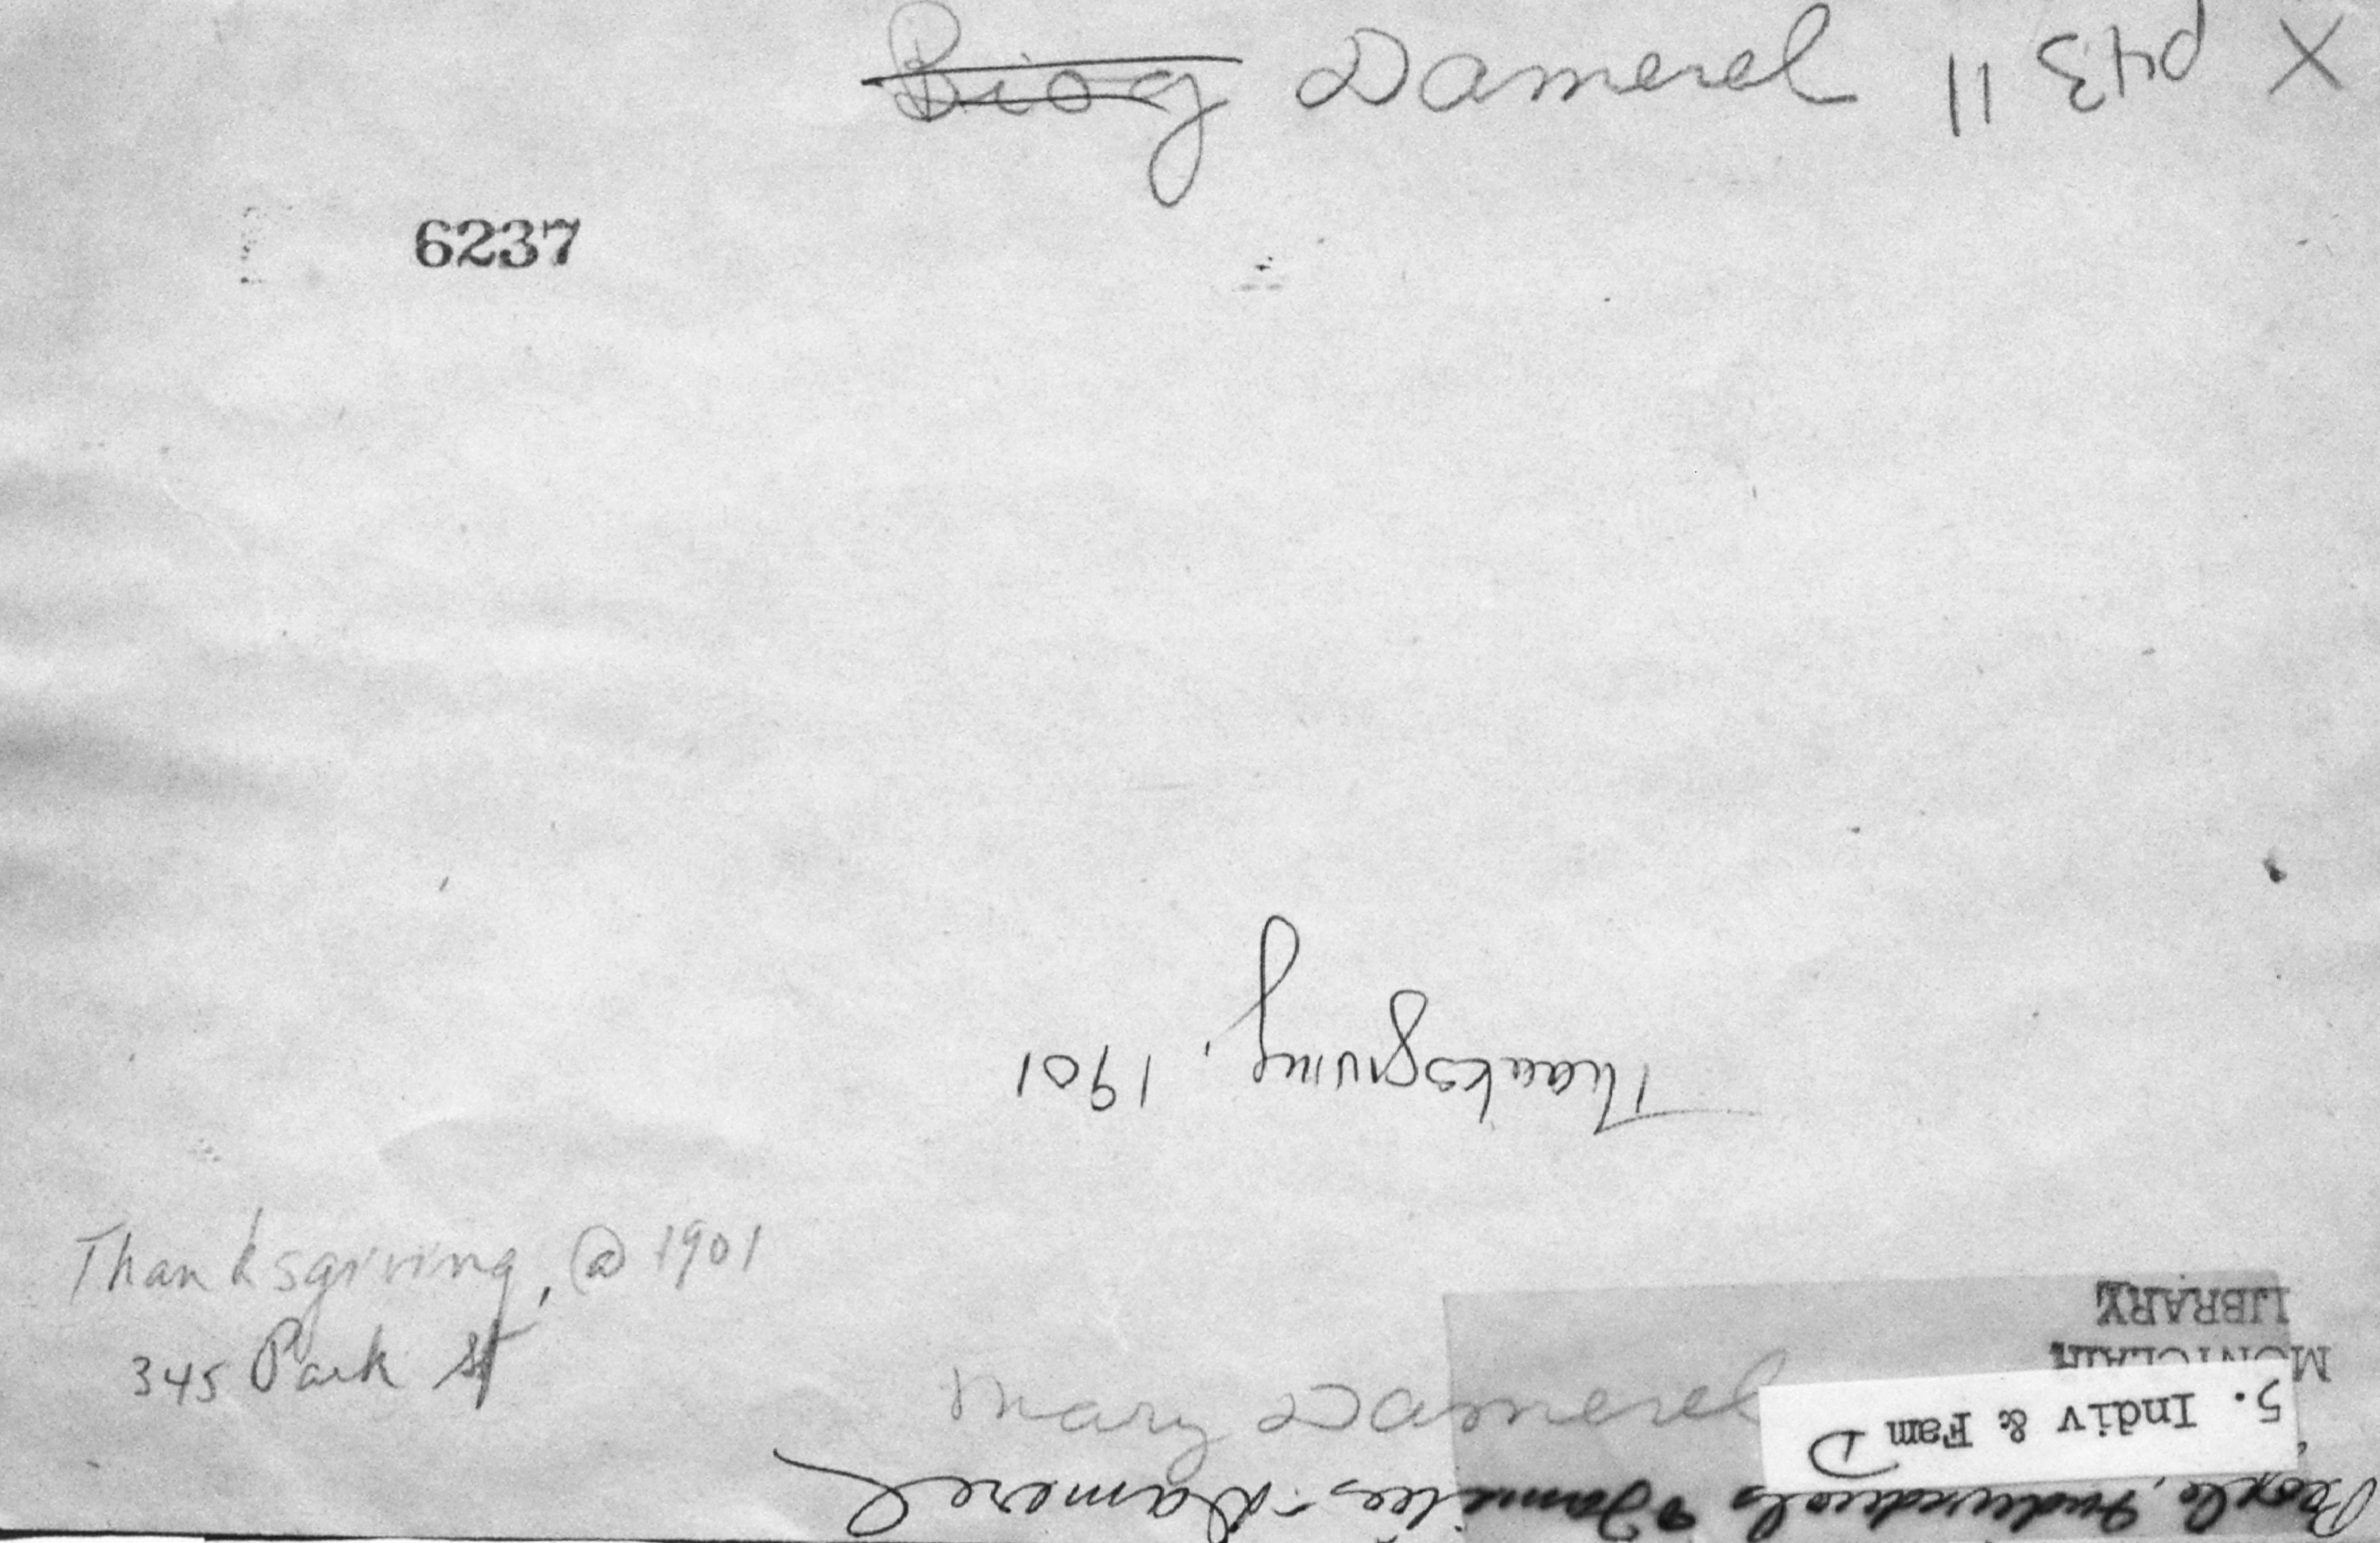 Biog Damerel
X p43 11
6237
Thanksgiving, 1901
Thanksgiving, @ 1901
345 Park St
Mary Damerel
MONTCLAIR
LIBRARY
5. Indiv & Fam D
People, Individuals & Families - Damerel